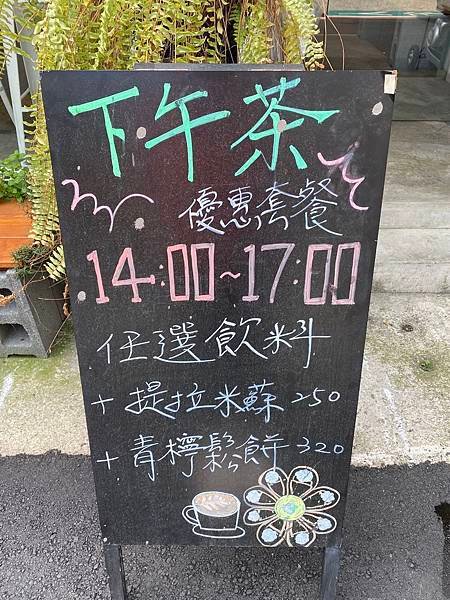 下午茶
優惠套餐
14:00~17:00
任選飲料
+提拉米蘇250
+青檸鬆餅320